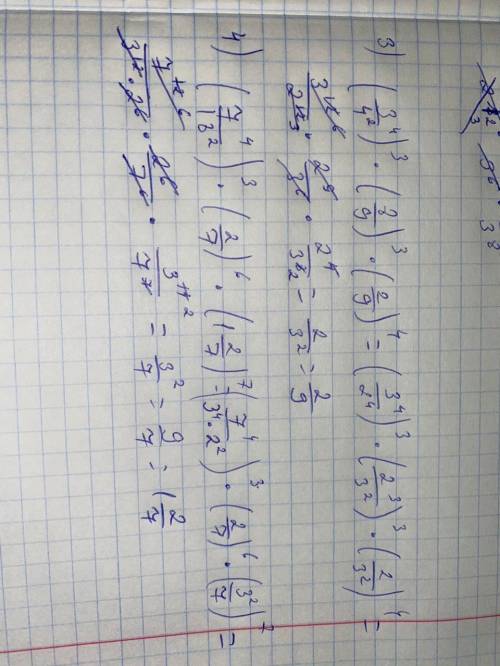 3) (3⁴/4²)³ · (8/9)³ · (2/9)⁴ = (3⁴/2⁴)³ · (2³/3²)³ · (2/3²)⁴ =
3¹²/2¹² · 2⁹/3⁶ · 2⁴/3⁸ = 2/3² = 2/9
4) (7⁴/18²)³ · (2/7)⁶ · (1 2/7)⁷ = (7⁴/3⁴·2²)³ · (2/7)⁶ · (3²/7)⁷ =
7¹²/3¹²·2⁶ · 2⁶/7⁶ · 3¹⁴/7⁷ = 3²/7 = 9/7 = 1 2/7